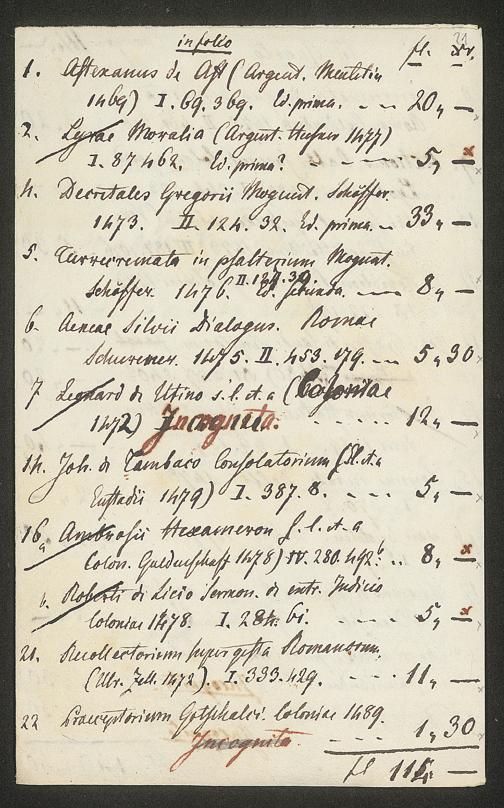 in folio
fl. xr.
1. Astexanus de Ast (Argent. Mentelin
1469) I. 69. 369. Ed. prima. - - 20,, —
2. Lyrae Moralia (Argent. Husner 1477)
I. 87 462. Ed. prima? - - - 5,, — x
4. Decretales Gregorii Mogunt. Schöffer
1473. II. 124. 32. Ed. prima. - 33,, —
5. Turrecremata in psalterium Mogunt.
II. 124. 39
Schöffer. 1476. Ed. secunda. — 8,, —
6. Aeneae Silvii Dialogus. Romae
Schurener. 1475. II. 453. 179. - - 5,, 30
7 Leonard de Utino s. l. et. a (Coloniae
1472) Incognita. - - - - - 12,, —
14. Joh. de Tambaco Consolatorium
Eustadii 1479) I. 387. 8. - - - 5,, —
16. Ambrosii Hexameron s. l. et. a
Colon. Guldenschaff 1478) IV. 280. 492. .. 8,, — x
Roberti de Licio Sermon. de extr. Judicio
Coloniae 1478. I. 284. 61. - - - - 5,, — x
21. Recollectorium super gesta Romanorum.
(Ulr. Zell. 1472). I. 333. 429. - - - - 11,, —
22 Praeceptorium Gotschalci. Coloniae 1489.
Incognita. - - - - 1,, 30
fl —